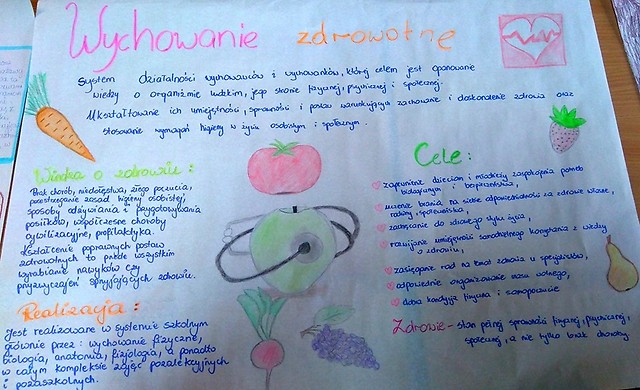 Wychowanie zdrowotne
System działalności wychowawców i wychowanków, której celem jest opanowanie
wiedzy o organizmie ludzkim, jego stanie fizycznej, psychicznej i społecznej.
Ukształtowanie ich umiejętności, sprawności i postaw warunkujących zachowanie i doskonalenie zdrowia oraz
stosowanie wymagań higieny w życiu osobistym i społecznym.
Wiedza o zdrowiu:
Brak chorób, niedołęstwa, złego poczucia,
przestrzeganie zasad higieny osobistej,
sposoby odżywiania i przygotowywania
posiłków, współczesne choroby
cywilizacyjne, profilaktyka.
Kształcenie poprawnych postaw
zdrowotnych to przede wszystkim
wyrabianie nawyków czy
przyzwyczajeń sprzyjających zdrowiu.
Realizacja:
Jest realizowane w systemie szkolnym
głównie przez: wychowanie fizyczne,
biologia, anatomia, fizjologia, a ponadto
w całym kompleksie zajęć pozalekcyjnych
i pozaszkolnych.
Cele:
zapewnienie dzieciom i młodzieży zaspokojenia potrzeb
biologicznych i bezpieczeństwa,
uczenie brania na siebie odpowiedzialności za zdrowie własne,
rodziny, społeczeństwa,
zachęcanie do zdrowego stylu życia,
rozwijanie umiejętności samodzielnego korzystania z wiedzy
o zdrowiu,
zasięganie rad na temat zdrowia u specjalistów,
odpowiednie organizowanie czasu wolnego,
dobra kondycja fizyczna i samopoczucie
Zdrowie - stan pełnej sprawności fizycznej, psychicznej,
społecznej, a nie tylko brak choroby.